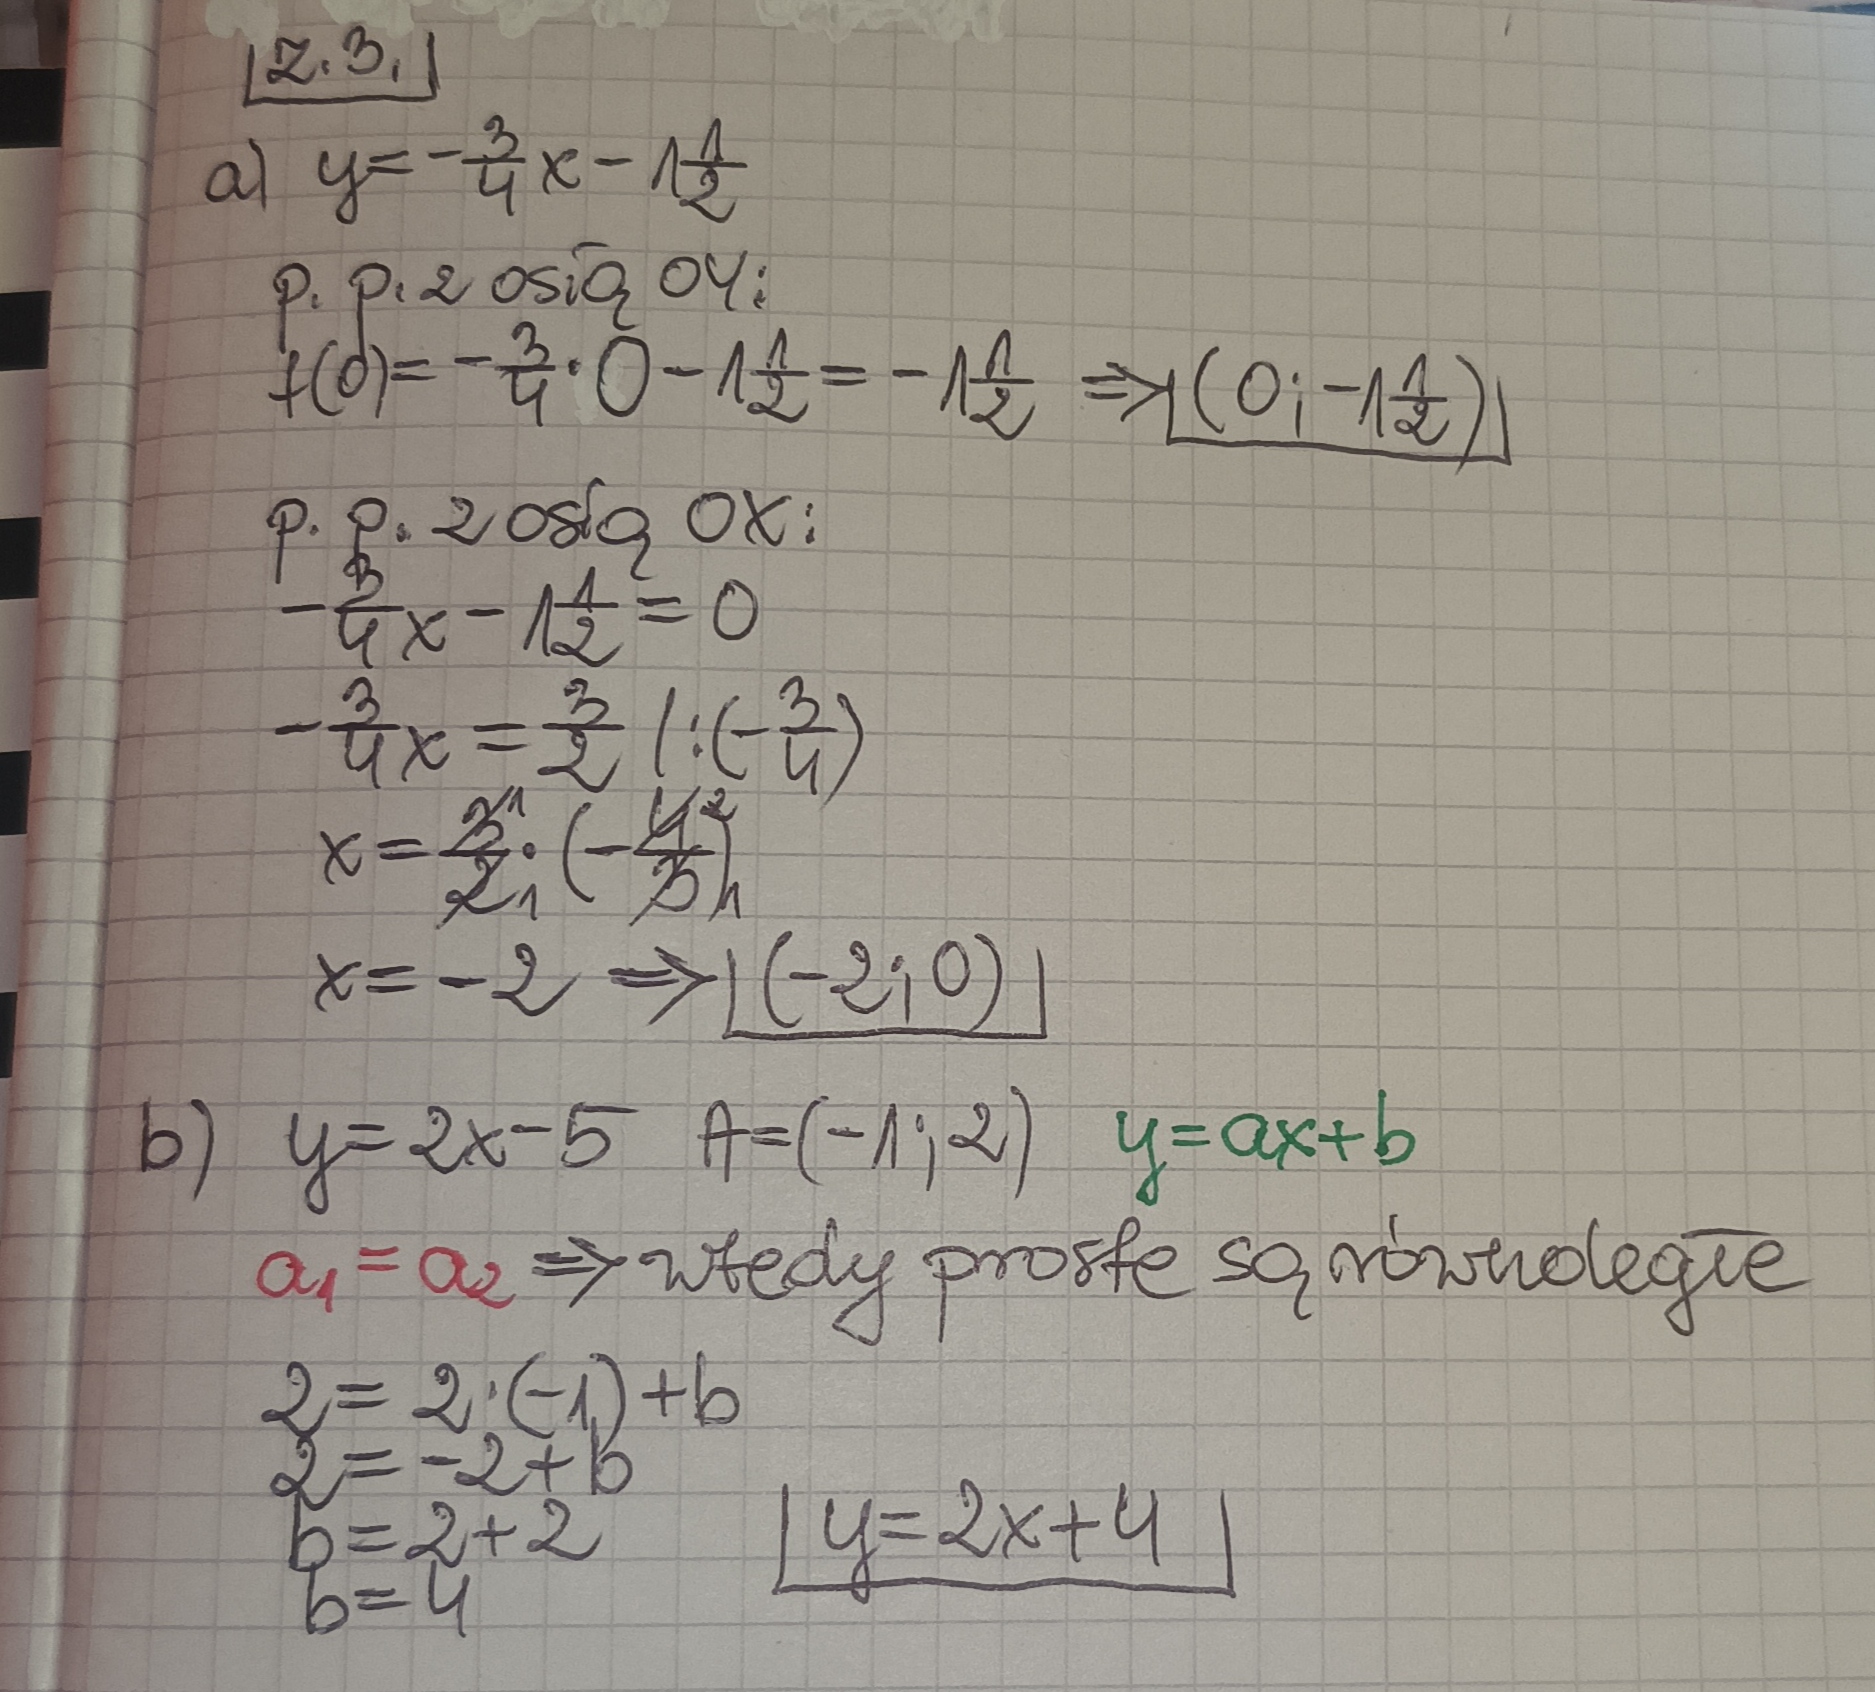 z.3.
a) y=-3/4x-1 1/2
p.p. z osią OY:
f(0)=-3/4·0-1 1/2=-1 1/2 ⇒ (0;-1 1/2)
p.p. z osią OX:
-3/4x-1 1/2=0
-3/4x=3/2 /:(-3/4)
x=3̸¹/2̸₁·(-4̸²/3̸₁)
x=-2 ⇒ (-2;0)
b) y=2x-5 A=(-1;2) y=ax+b
a₁=a₂ ⇒ wtedy proste są równoległe
2=2·(-1)+b
2=-2+b
b=2+2
b=4
y=2x+4